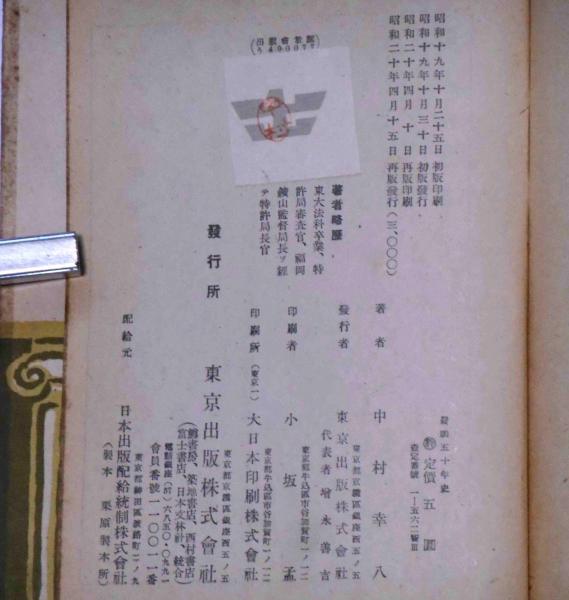 昭和十九年十月二十五日 初版印刷
昭和十九年十月三十日 初版發行
昭和二十年四月十日 再版印刷
昭和二十年四月十五日 再版發行(三、〇〇〇)
五十年史
定價 五圓
著者 中村幸八
東京都京橋區銀座西五ノ五
發行者 東京出版株式會社
代表者 增永善吉
東京都牛込區市谷加賀町一ノ一二
印刷者 小坂孟
東京都牛込區市谷加賀町一ノ一二
印刷所(東京一) 大日本印刷株式會社
著者略歷
東大法科卒業、特
許局審査官、福岡
鑛山監督局長ヲ經
テ特許局長官
東京都京橋區銀座西五ノ五
發行所 東京出版株式會社
(鶴書房、築地書店、西村書店
富士書店、日本文林社、統合)
電話銀座(57)六八五〇・〇九九一
會員番號一一〇〇一一番
東京都神田區淡路町二ノ九
配給元 日本出版配給統制株式會社
(製本 栗原製本所)